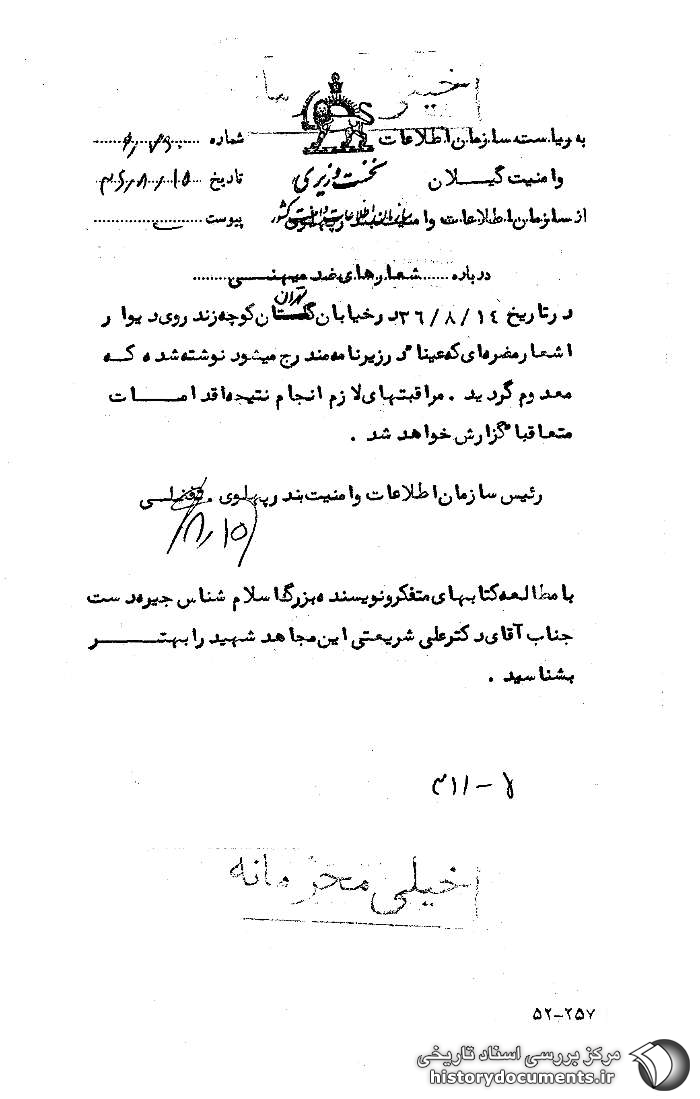 خیلی
به ریاست سازمان اطلاعات
شماره
وامنیت گیلان
نخست وزیری
تاریخ ۱۵/۸/۳۶
از سازمان اطلاعات وامنیت بندرپهلوی
سازمان اطلاعات و امنیت کشور
پیوست
درباره ...... شعارهای ضد میهنی ........
تهران
درتاریخ ۳۶/۸/۱۴ درخیابان گلستان کوچه زند روی دیوار
اشعار مضره‌ای که عینا در زیرنامه مندرج میشود نوشته شده که
معدوم گردید . مراقبتهای لازم انجام نتیجه اقدامات
متعاقبا گزارش خواهد شد .
رئیس سازمان اطلاعات وامنیت بندرپهلوی .
۸/۱۵
با مطالعه کتابهای متفکر و نویسنده بزرگ اسلام شناس چیره دست
جناب آقای دکتر علی شریعتی این مجاهد شهید را بهتر
بشناسید .
خیلی محرمانه
۵۲-۲۵۷
مرکز بررسی اسناد تاریخی
historydocuments.ir